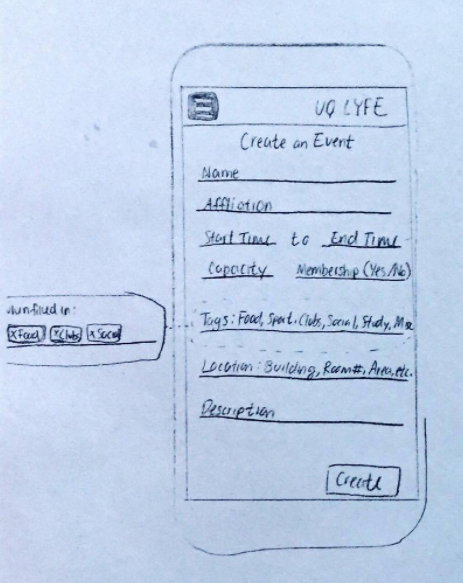 UQ LYFE
Create an Event
Name
Affliation
Start Time to End Time
Capacity Membership (Yes/No)
Tags: Food, Sport, Clubs, Social, Study, Misc
Location: Building, Room#, Area, etc.
Description
Create
filled in:
x Food x Clubs x Social